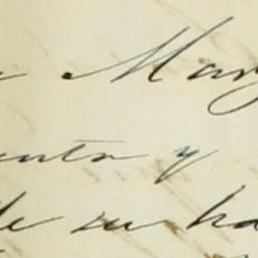 y Mar
ento y
de su ha